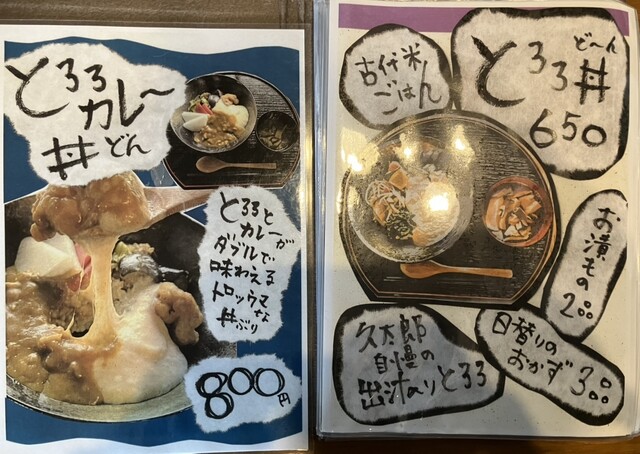 とろろ
カレー
丼どん
とろろと
カレーが
ダブルで
味わえる
トロックマな
丼ぶり
800円
古代米
ごはん
ど〜ん
とろろ丼
650
お漬もの
200
日替りの
おかず 300
久太郎
自慢の
出汁入りとろろ